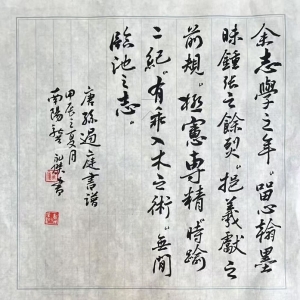 余志學之年留心翰墨
味鍾張之餘烈挹羲獻之
前規極慮專精時踰
二紀有乖入木之術無間
臨池之志
唐孫過庭書譜
甲辰之夏月
南陽
書